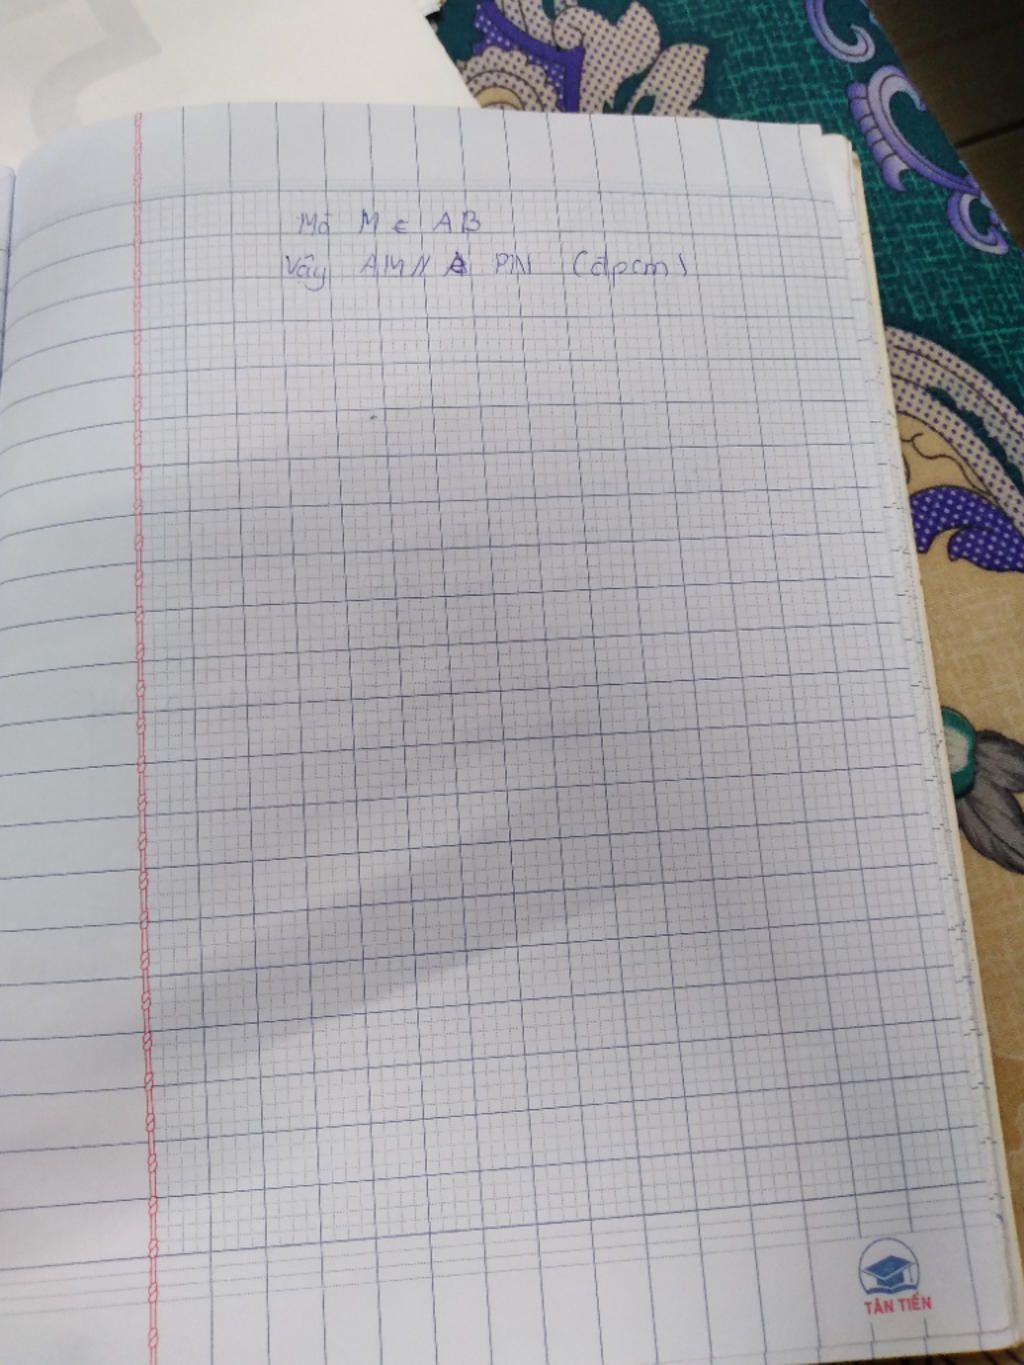 Mà M ∈ AB
Vậy AMN PN (đpcm)
TÂN TIẾN